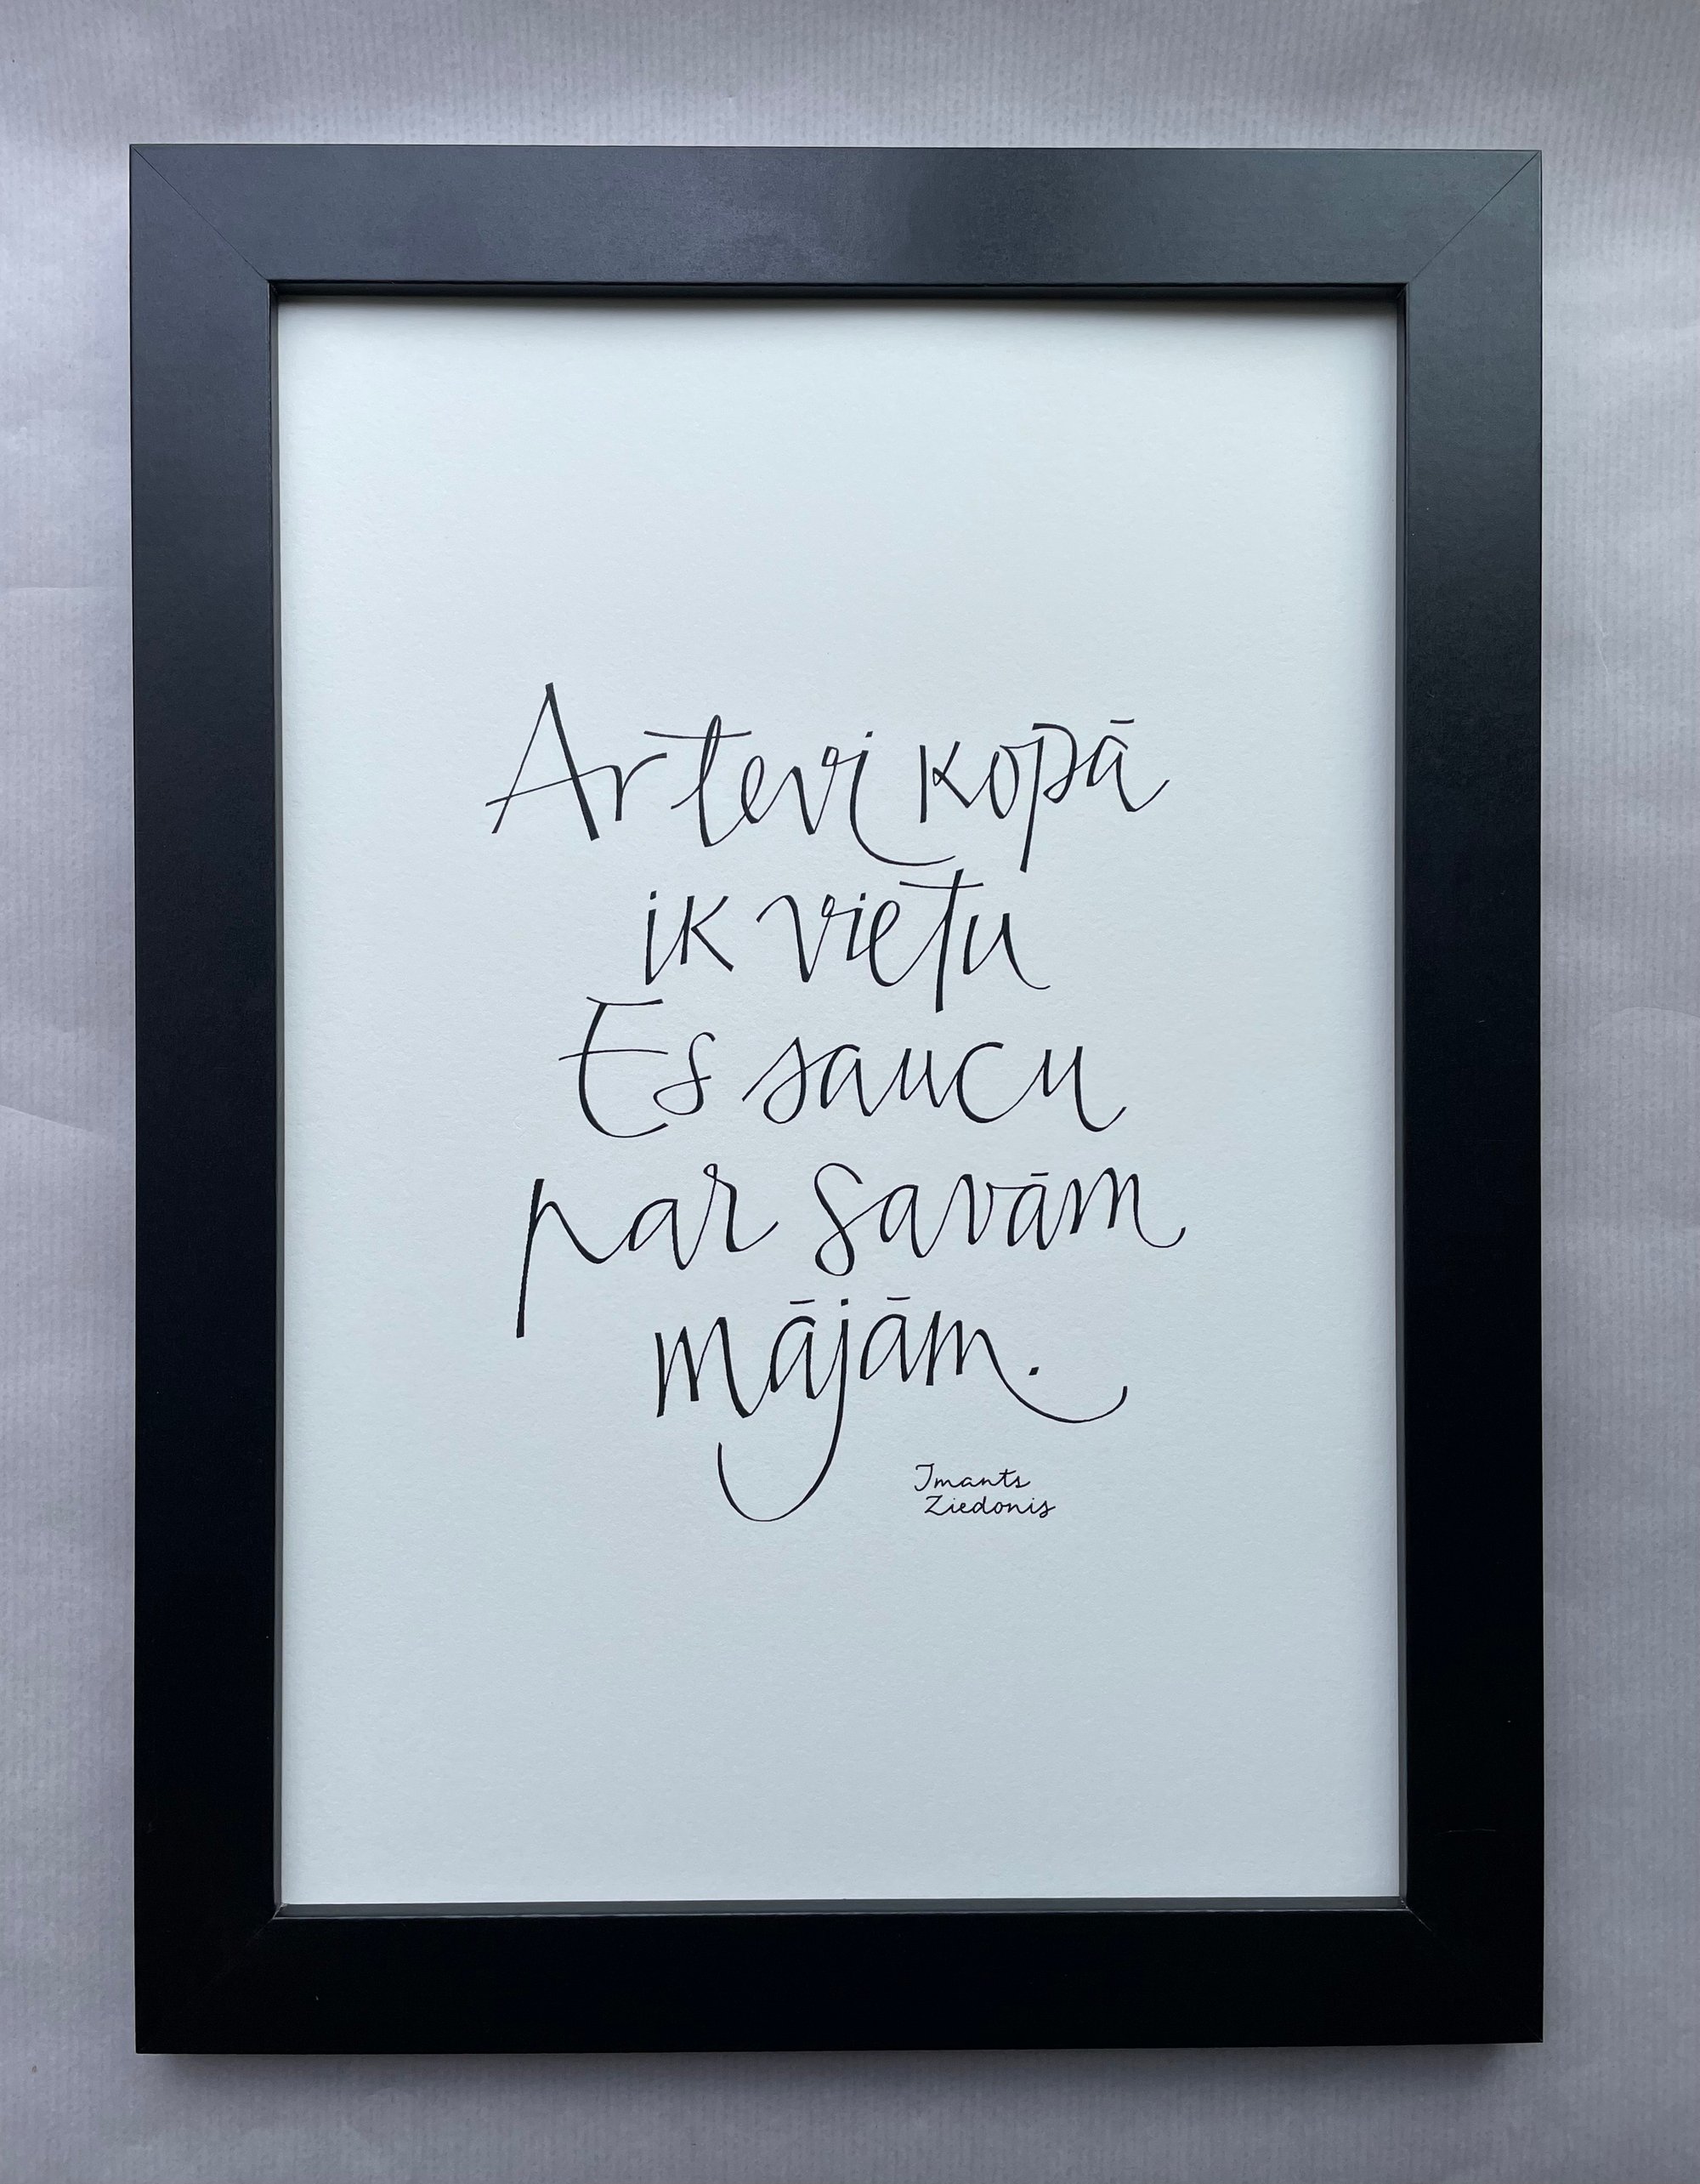 Ar tevi kopā
ik vietu
Es saucu
par savām
mājām.
Imants
Ziedonis